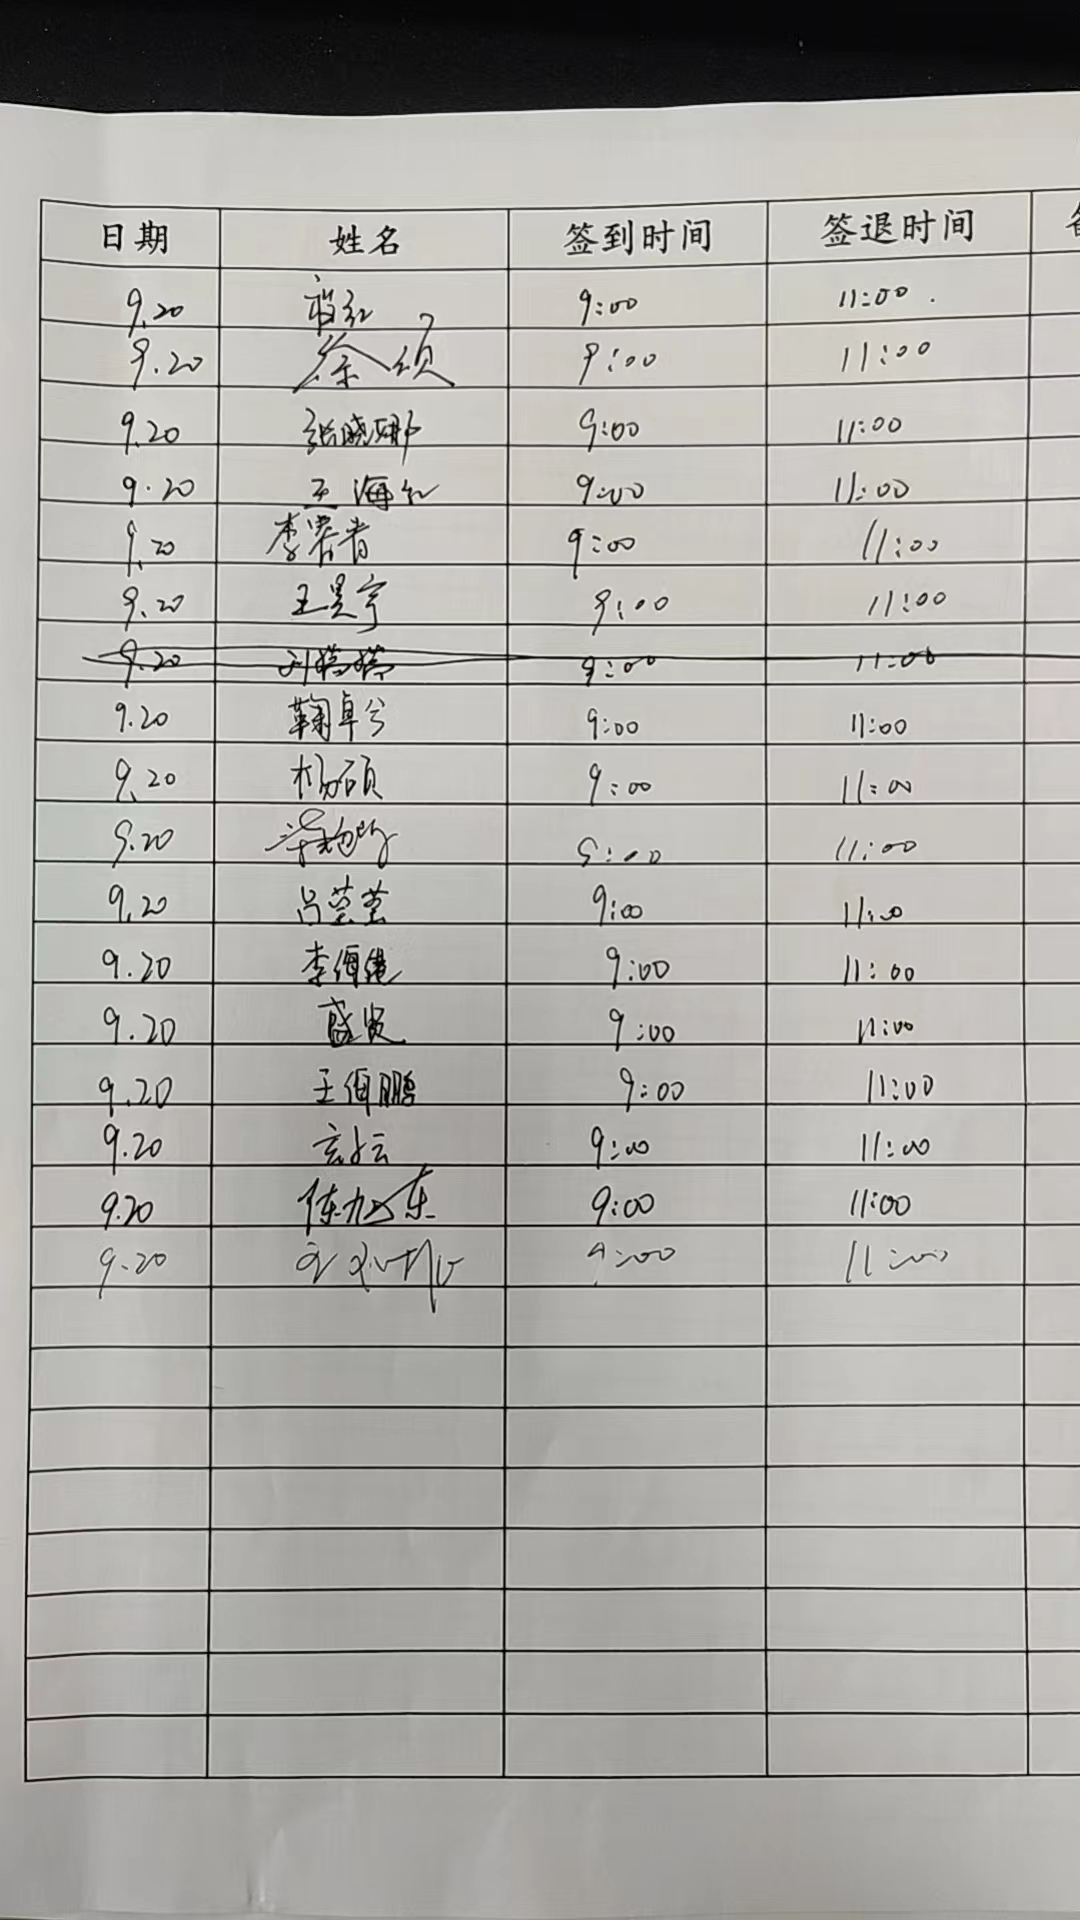 日期 姓名 签到时间 签退时间
9.20 9:00 11:00
9.20 徐硕 9:00 11:00
9.20 张晓娜 9:00 11:00
9.20 王海红 9:00 11:00
9.20 李 9:00 11:00
9.20 王昊宇 9:00 11:00
9.20 刘 9:00 11:00
9.20 鞠卓兮 9:00 11:00
9.20 杨硕 9:00 11:00
9.20 9:00 11:00
9.20 吕莹莹 9:00 11:00
9.20 李 9:00 11:00
9.20 盛 9:00 11:00
9.20 王伯鹏 9:00 11:00
9.20 9:00 11:00
9.20 陈旭东 9:00 11:00
9.20 9:00 11:00